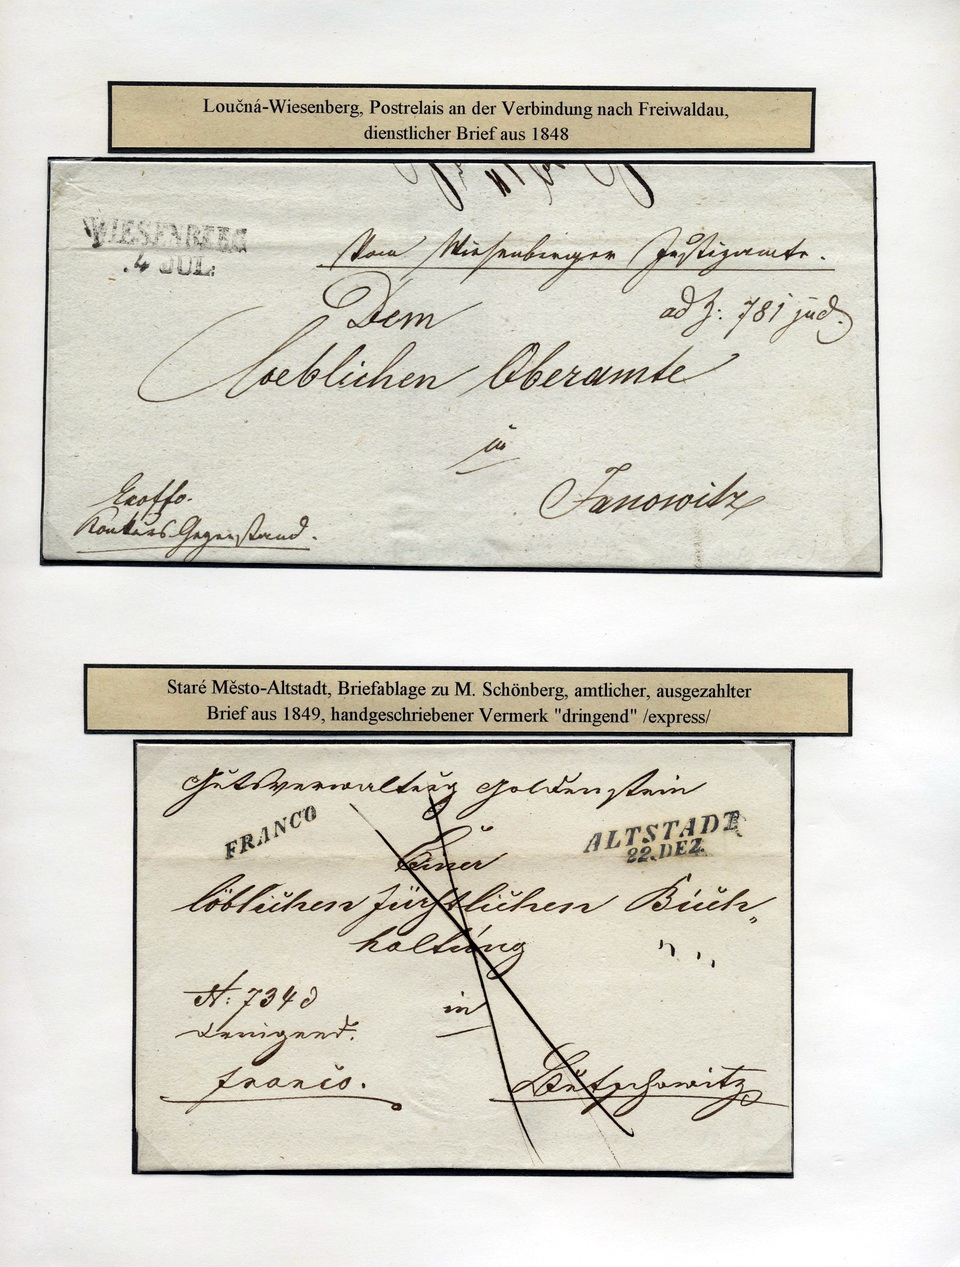 Loučná-Wiesenberg, Postrelais an der Verbindung nach Freiwaldau,
dienstlicher Brief aus 1848
WIESENBERG
4 JUL.
Vom Wiesenberger Justizamte.
Dem
ad Z: 781 jud.
Loeblichen Oberamte
in
Janowitz
Exoffo.
Gegenstand.
Staré Město-Altstadt, Briefablage zu M. Schönberg, amtlicher, ausgezahlter
Brief aus 1849, handgeschriebener Vermerk "dringend" /express/
Gutsverwaltung Goldenstein
FRANCO
ALTSTADT
22. DEZ.
Einer
löblichen fürstlichen Buch-
haltung
in
dringend.
franco.
Butschowitz